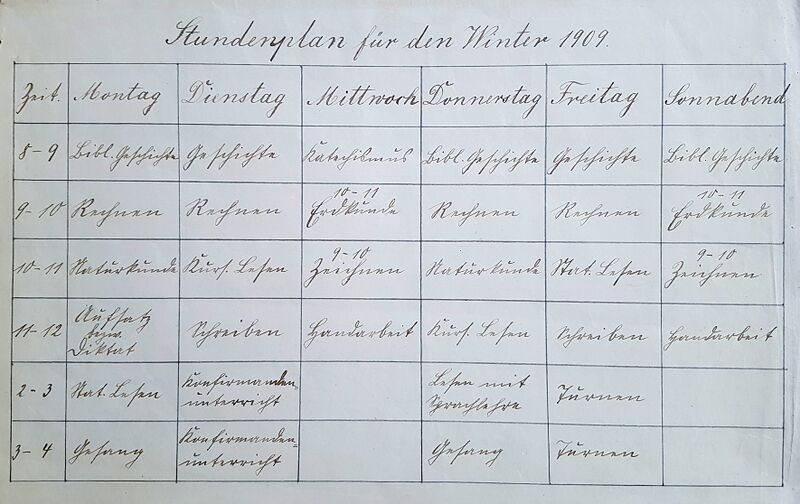 Stundenplan für den Winter 1909.
Zeit. Montag Dienstag Mittwoch Donnerstag Freitag Sonnabend
8-9 Bibl. Geschichte Geschichte Katechismus Bibl. Geschichte Geschichte Bibl. Geschichte
10-11 10-11
9-10 Rechnen Rechnen Erdkunde Rechnen Rechnen Erdkunde
9-10 9-10
10-11 Naturkunde Kurs. Lesen Zeichnen Naturkunde Stat. Lesen Zeichnen
Aufsatz
11-12 bezw. Schreiben Handarbeit Kurs. Lesen Schreiben Handarbeit
Diktat
Konfirmanden- Lesen mit
2-3 Stat. Lesen unterricht Sprachlehre Turnen
Konfirmanden-
3-4 Gesang unterricht Gesang Turnen